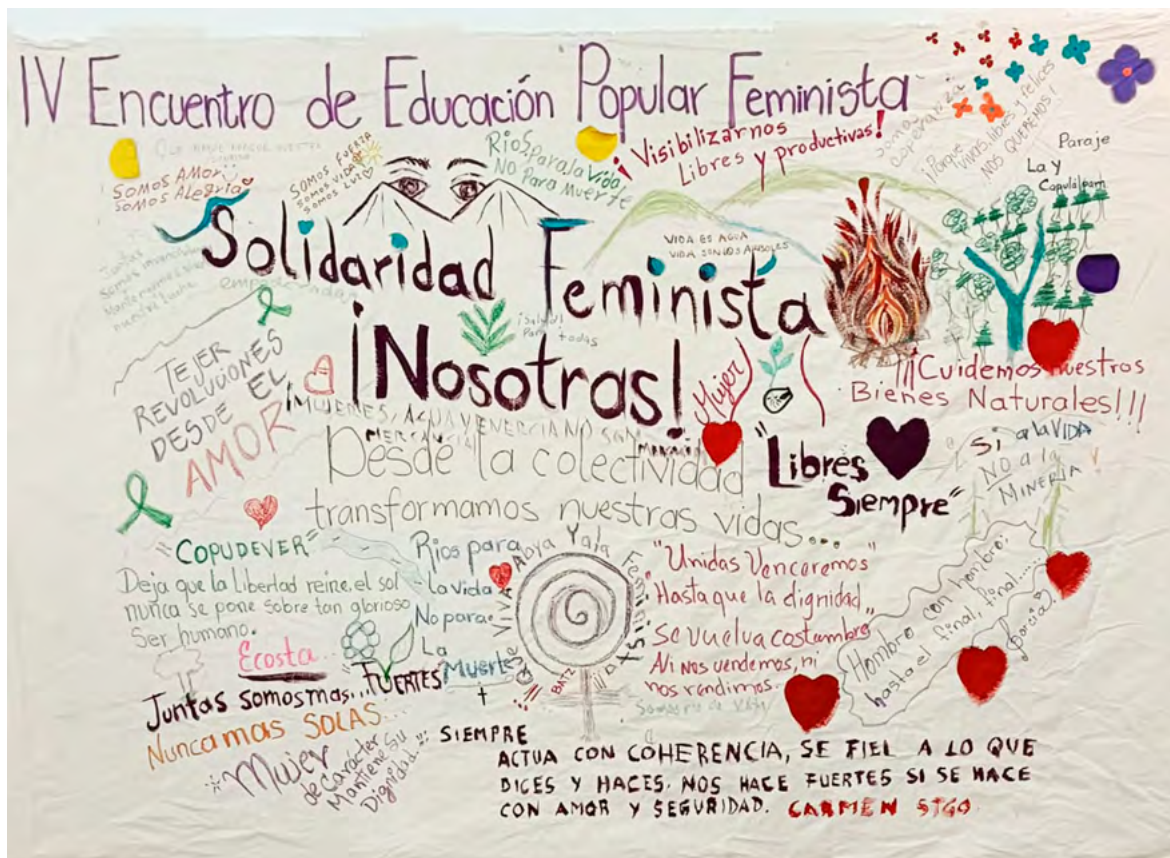 IV Encuentro de Educación Popular Feminista
SOMOS AMOR
SOMOS ALEGRIA
SOMOS FUERZA
SOMOS VIDA
SOMOS LUZ
Rios Para la Vida
NO Para Muerte
¡Visibilizarnos
Libres y productivas!
somos
esperanza
¡Porque
vivas, libres y felices
NOS QUEREMOS!
Paraje
La y
Capulálpam
Solidaridad Feminista
¡Nosotras!
Juntas
Somos
nuestra lucha
empoderadas
VIDA ES AGUA
VIDA SON LOS ARBOLES
¡Salud!
Para todas
TEJER
REVOLUCIONES
DESDE EL
AMOR
Mujer
¡¡¡Cuidemos nuestros
Bienes Naturales!!!
¡MUJERES, AGUA Y ENERGIA NO SON
MERCANCIA
Desde la colectividad
transformamos nuestras vidas...
"Libres
Siempre"
SI a la VIDA
NO a la
MINERIA
"COPUDEVER"
Deja que la Libertad reine, el sol
nunca se pone sobre tan glorioso
Ser humano.
Ecosta
Rios para
La vida
No para
La
Muerte
Que VIVA Abya Yala Feminista
BATZ
"Unidas Venceremos"
Hasta que la dignidad
Se vuelva costumbre
Ni nos vendemos, ni
nos rendimos.
Hombro con hombro:
hasta el final, final.....
Juntas somos mas... "FUERTES
Nunca mas SOLAS...
Mujer
de Carácter
Mantiene Su
Dignidad...
SIEMPRE
ACTUA CON COHERENCIA, SE FIEL A LO QUE
DICES Y HACES. NOS HACE FUERTES SI SE HACE
CON AMOR Y SEGURIDAD. CARMEN STGO.